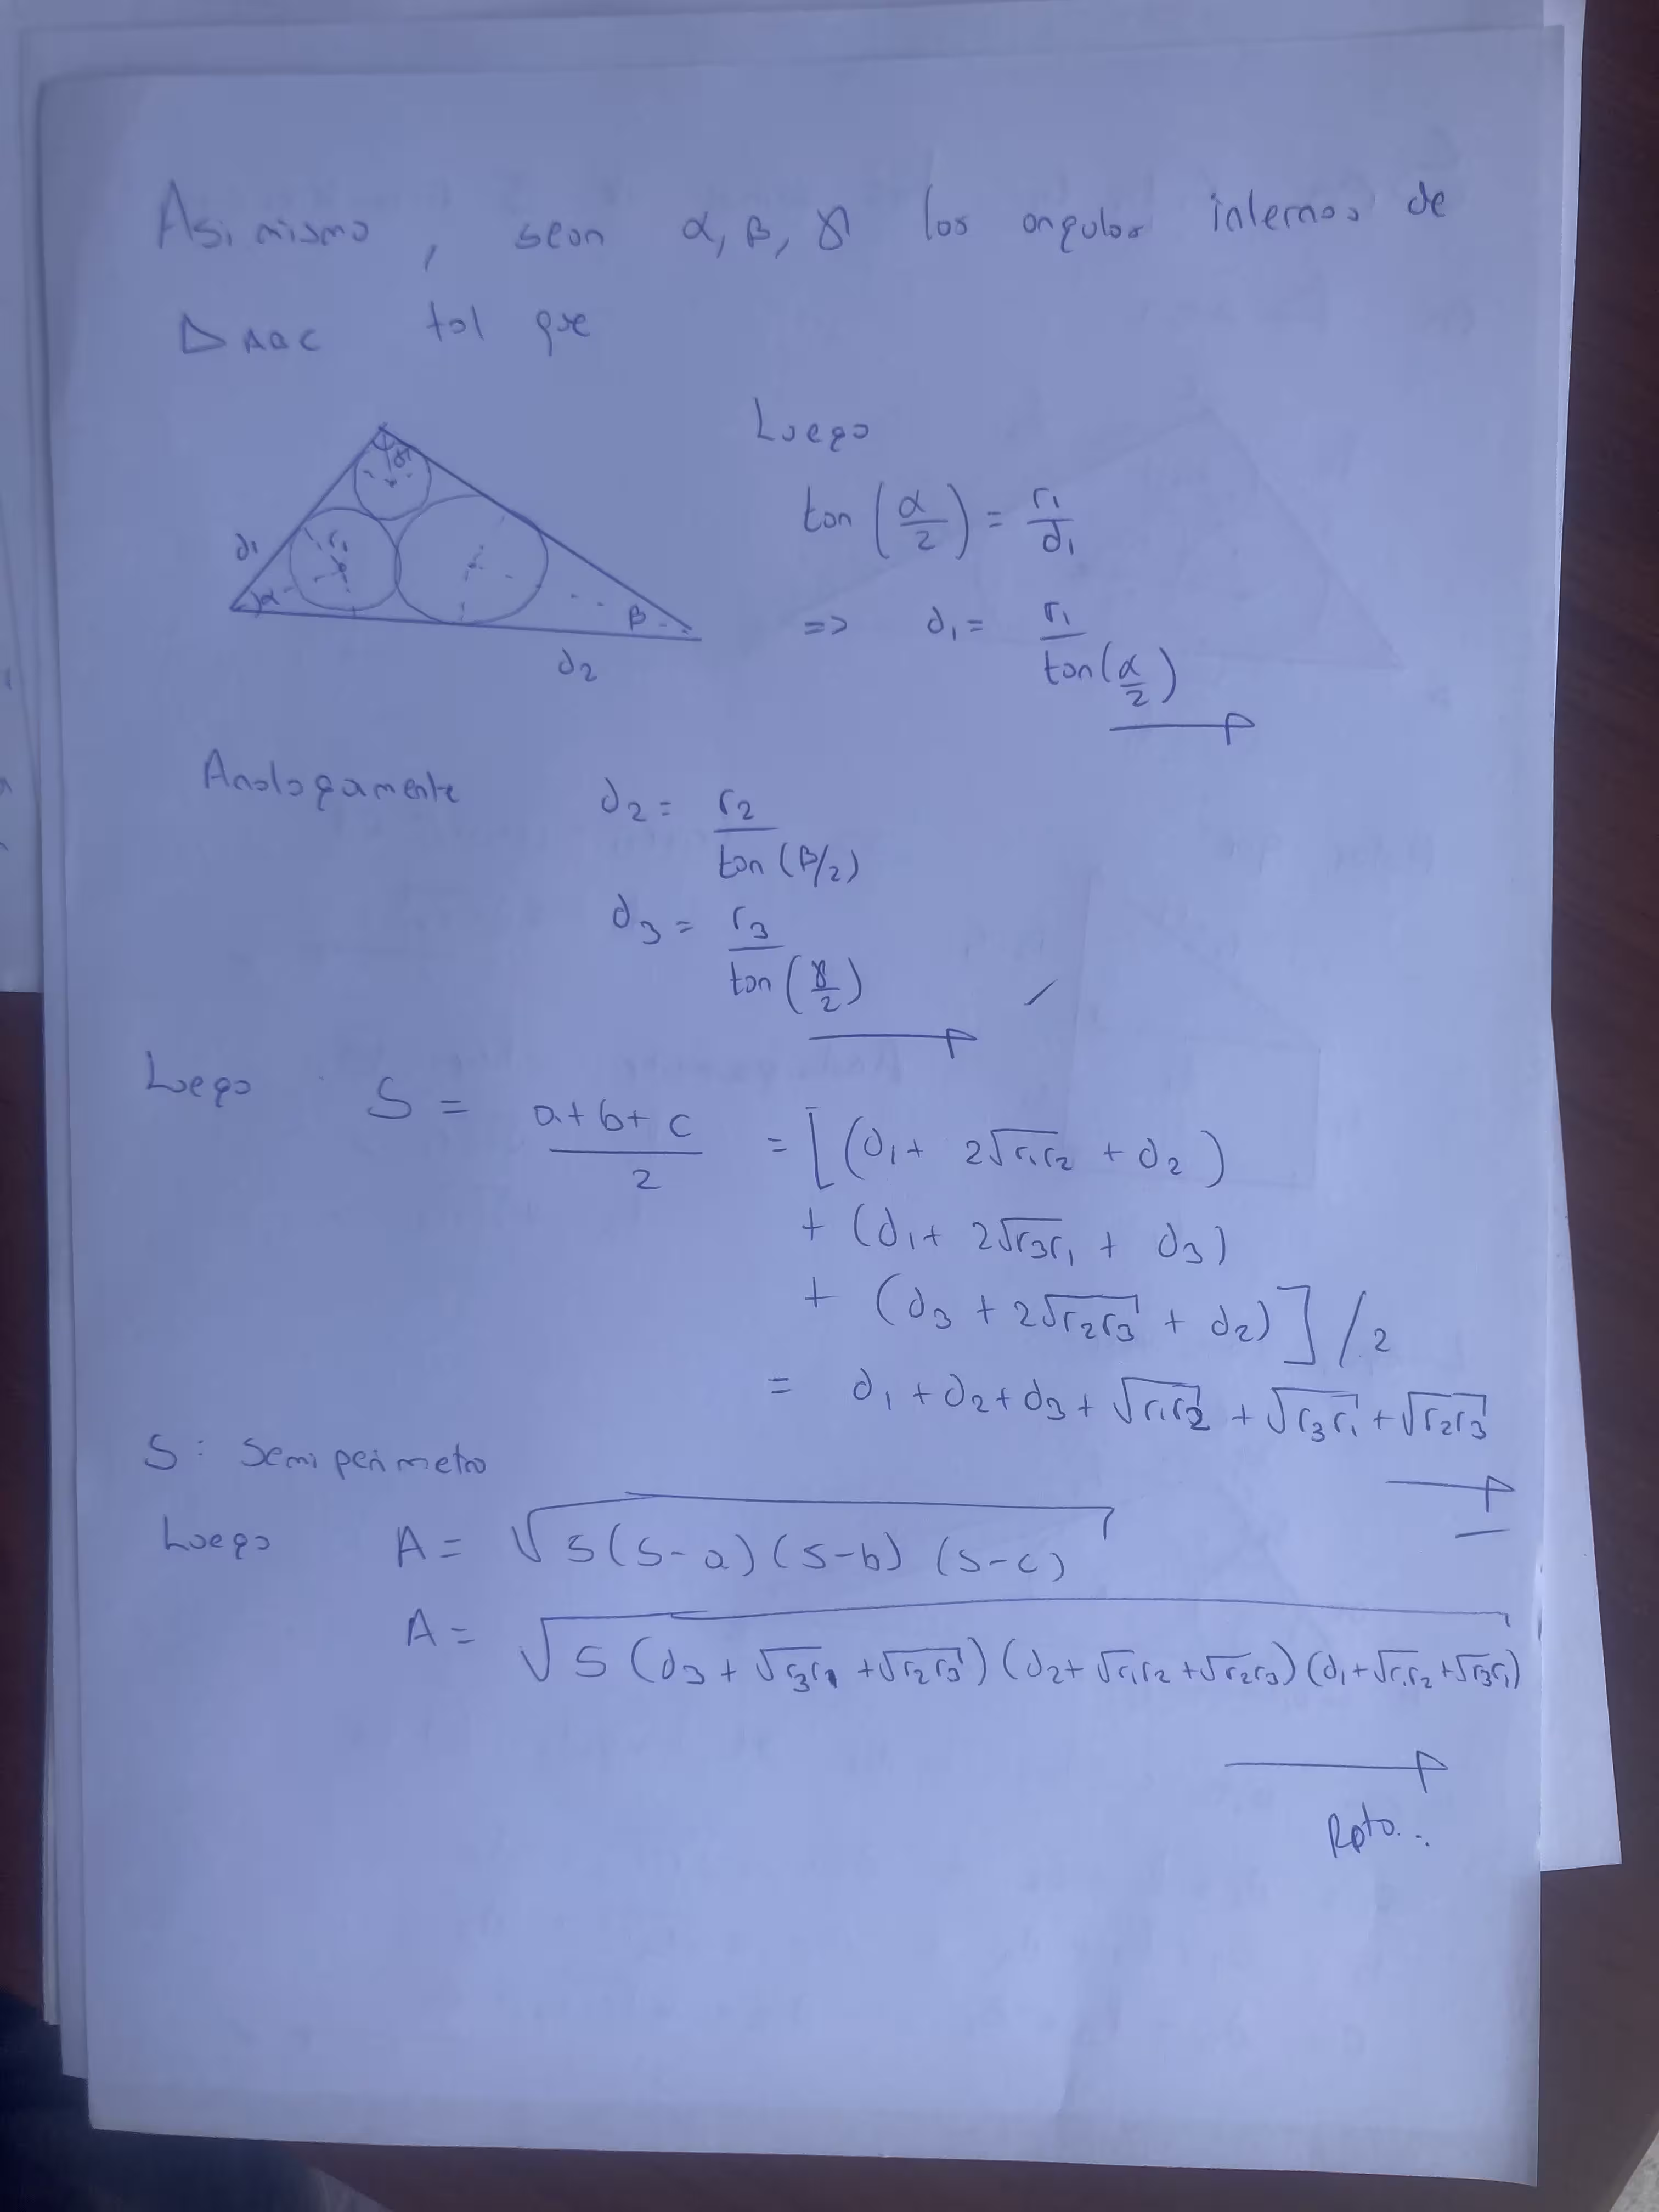 Asi mismo, sean α, β, γ los angulos internos de
△ABC tal que
γ
d₁ r₁
α β
d₂
Luego
tan (α/2) = r₁/d₁
=> d₁ = r₁/tan(α/2)
Analogamente d₂ = r₂/tan(β/2)
d₃ = r₃/tan(γ/2)
Luego S = (a+b+c)/2 = [(d₁ + 2√r₁r₂ + d₂)
+ (d₁ + 2√r₃r₁ + d₃)
+ (d₃ + 2√r₂r₃ + d₂)] / 2
= d₁ + d₂ + d₃ + √r₁r₂ + √r₃r₁ + √r₂r₃
S: Semiperimetro
Luego A = √S(S-a)(S-b)(S-c)
A = √S(d₃ + √r₃r₁ + √r₂r₃)(d₂ + √r₁r₂ + √r₂r₃)(d₁ + √r₁r₂ + √r₃r₁)
Rpta.